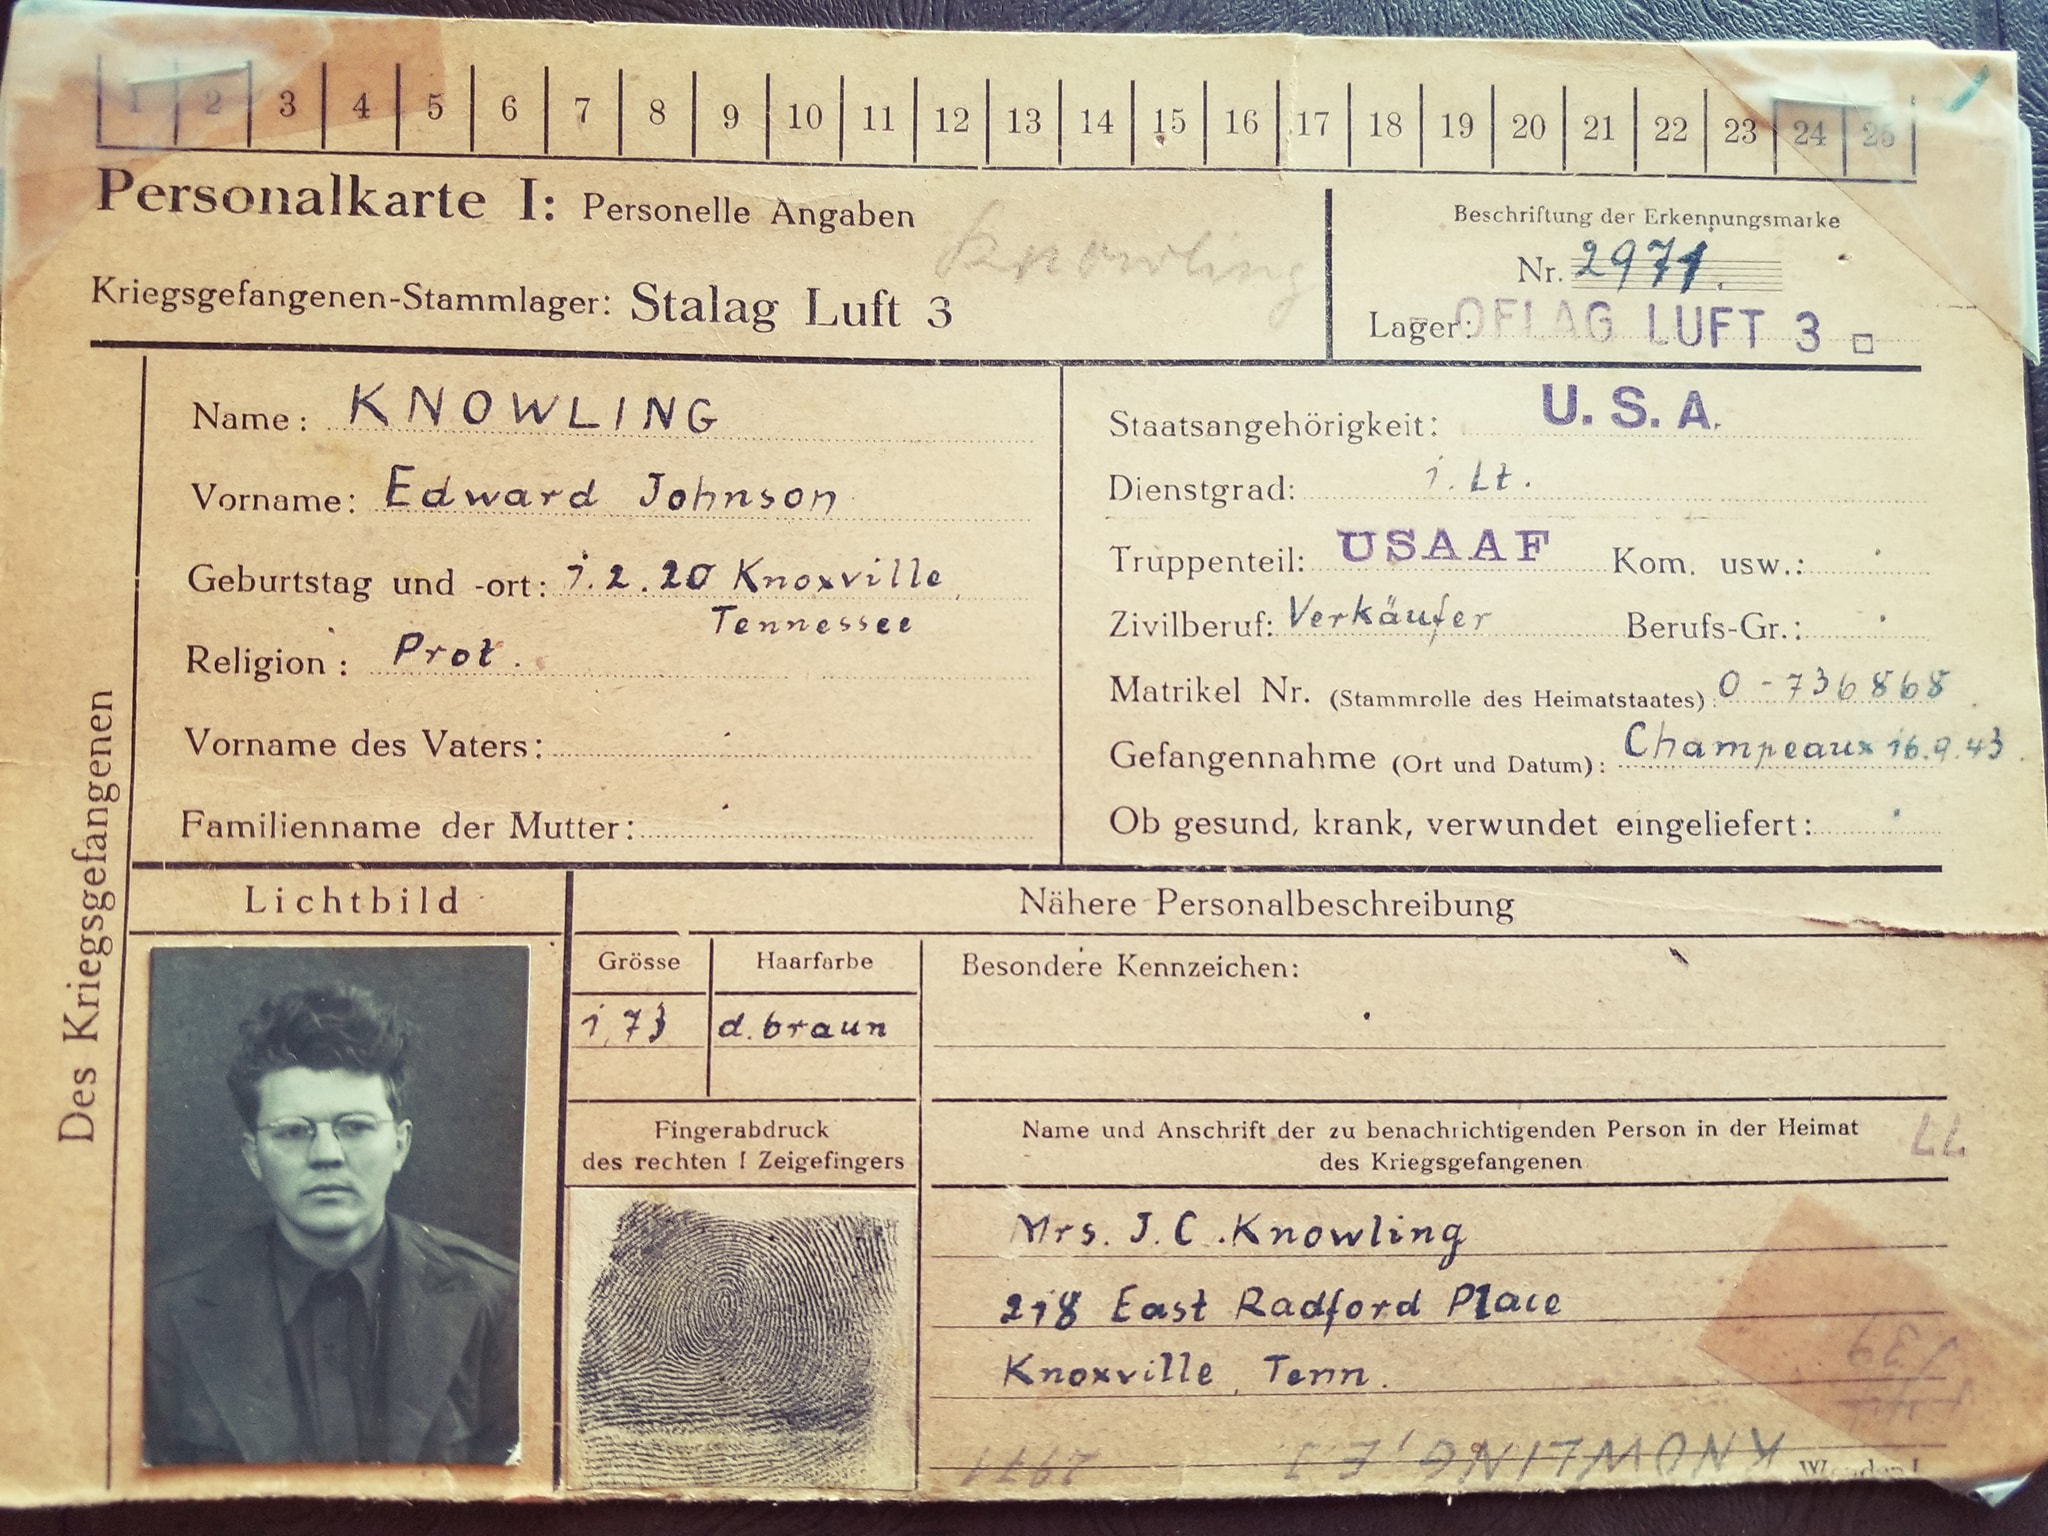 1 2 3 4 5 6 7 8 9 10 11 12 13 14 15 16 17 18 19 20 21 22 23 24 25
Personalkarte I: Personelle Angaben
Knowling
Kriegsgefangenen-Stammlager: Stalag Luft 3
Beschriftung der Erkennungsmarke
Nr. 2971.
Lager: OFLAG LUFT 3
Des Kriegsgefangenen
Name: KNOWLING
Vorname: Edward Johnson
Geburtstag und -ort: 1.2.20 Knoxville
Tennessee
Religion: Prot.
Vorname des Vaters:
Familienname der Mutter:
Staatsangehörigkeit: U.S.A.
Dienstgrad: 1. Lt.
Truppenteil: USAAF Kom. usw.:
Zivilberuf: Verkäufer Berufs-Gr.:
Matrikel Nr. (Stammrolle des Heimatstaates): 0-736868
Gefangennahme (Ort und Datum): Champeaux 16.9.43.
Ob gesund, krank, verwundet eingeliefert:
Lichtbild
Nähere Personalbeschreibung
Grösse Haarfarbe
1,73 d. braun
Besondere Kennzeichen:
Fingerabdruck
des rechten ! Zeigefingers
Name und Anschrift der zu benachrichtigenden Person in der Heimat
des Kriegsgefangenen
Mrs. J. C. Knowling
218 East Radford Place
Knoxville, Tenn.
KNOWLING, E.J. 2971
Wenden!